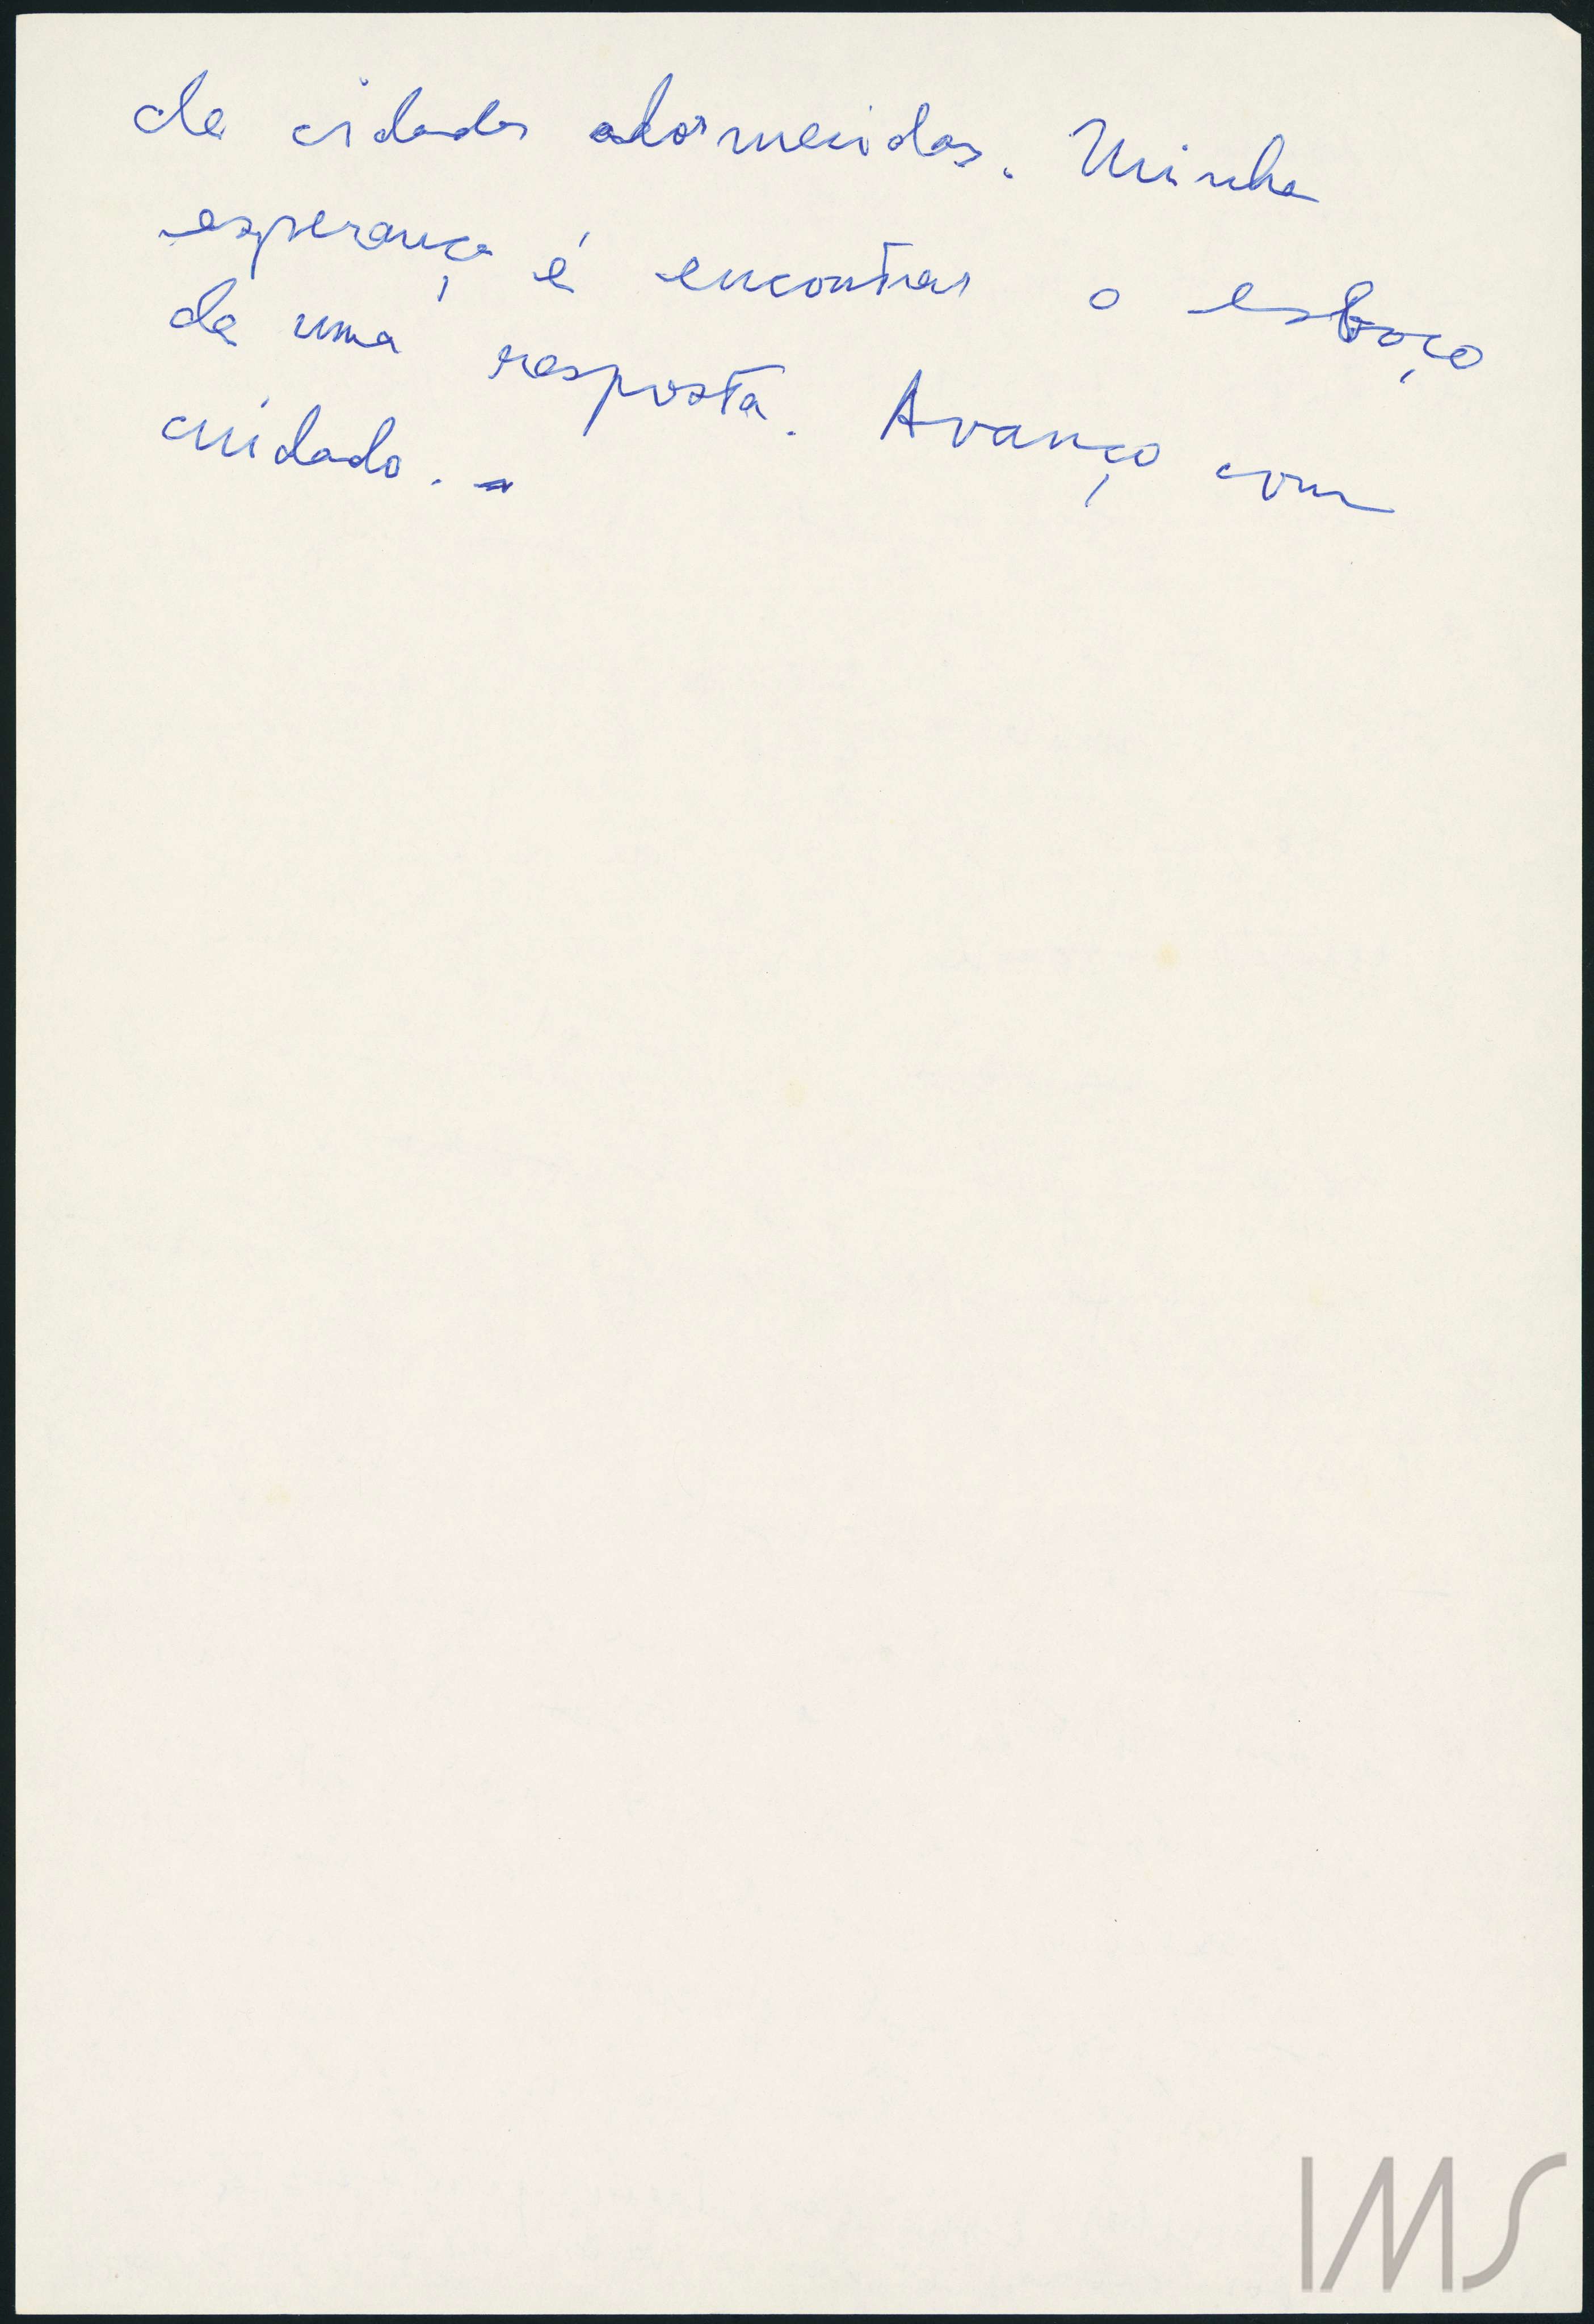 de cidades adormecidas. Minha
esperança é encontrar o esboço
de uma resposta. Avanço com
cuidado. –
IMS